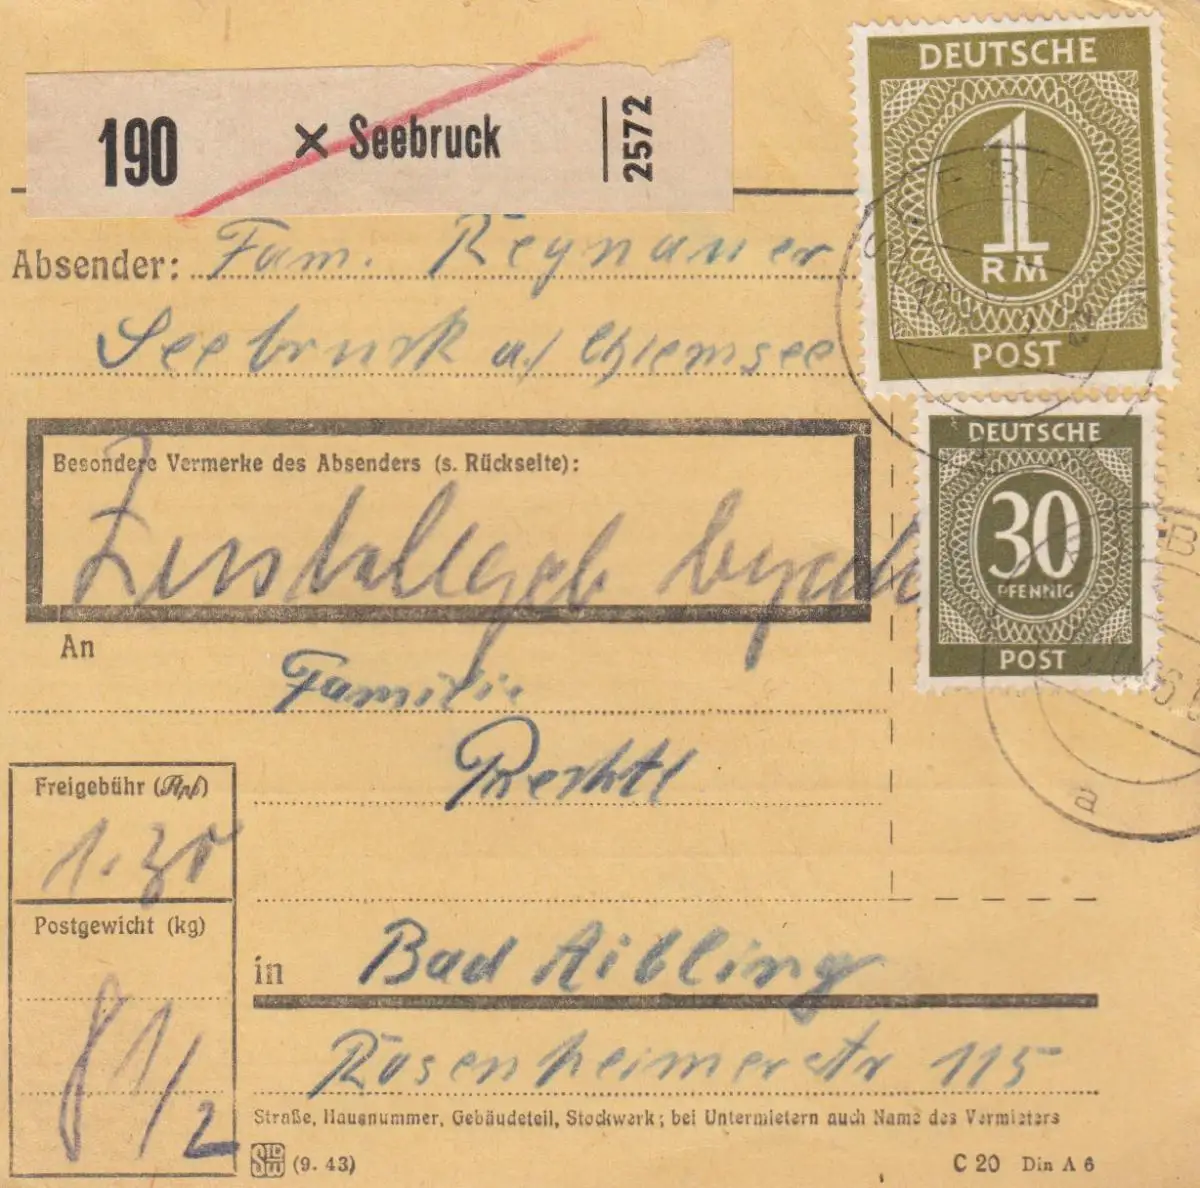 190 × Seebruck 2572
Absender: Fam. Reynauer
Seebruck a/ Chiemsee
Besondere Vermerke des Absenders (s. Rückseite):
Zustellgeb
An
Familie
Prechtl
Freigebühr (Rpf)
1.30
Postgewicht (kg)
8 1/2
in Bad Aibling
Rosenheimerstr 115
Straße, Hausnummer, Gebäudeteil, Stockwerk; bei Untermietern auch Name des Vermieters
(9. 43)
C 20 Din A 6
DEUTSCHE
1
RM
POST
DEUTSCHE
30
PFENNIG
POST
a